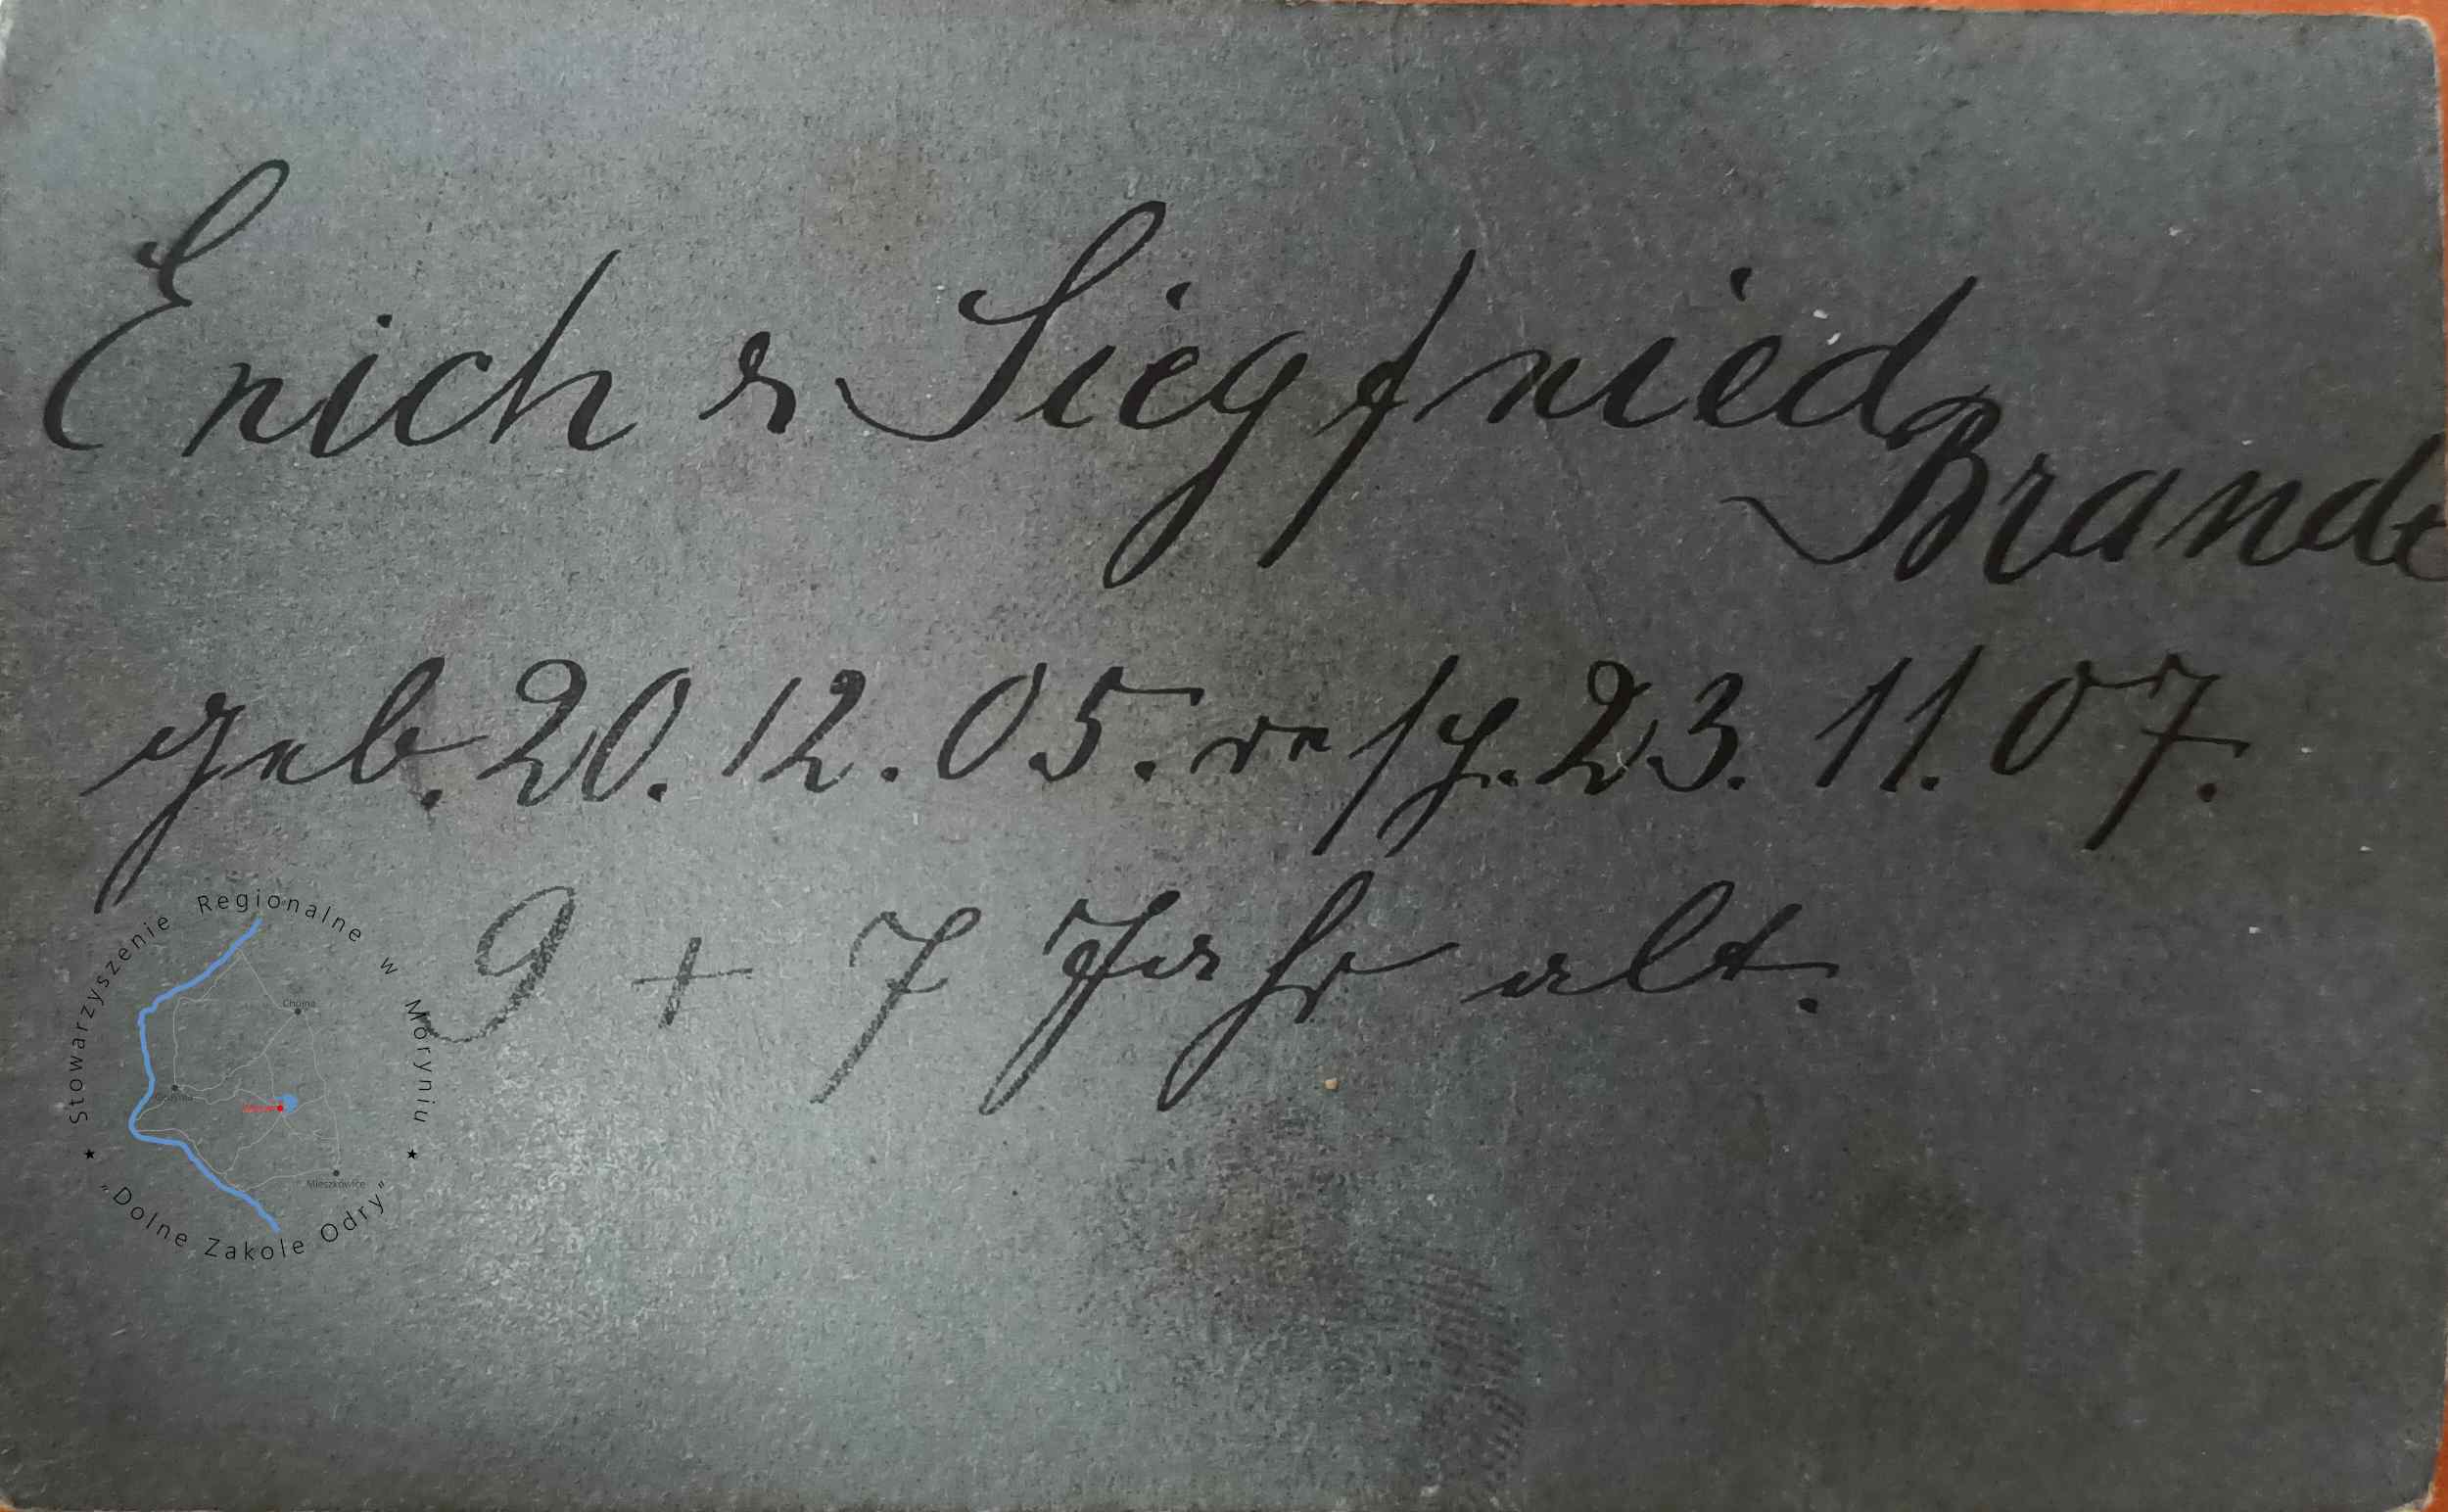 Erich & Siegfried
Brandt
geb. 20.12.05. resp. 23.11.07.
9 + 7 Jahr alt.
Stowarzyszenie Regionalne w Moryniu
"Dolne Zakole Odry"
Chojna
Mieszkowice